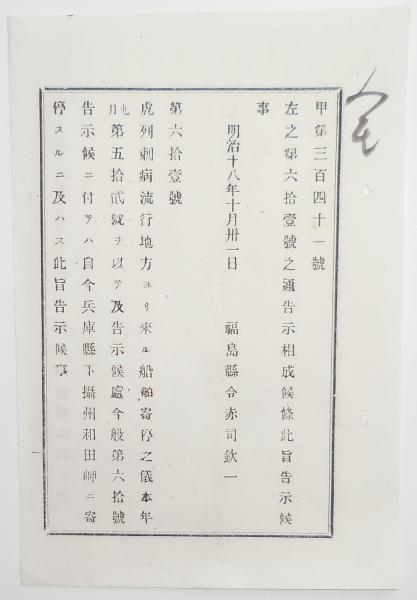 甲第三百四十一號
左之第六拾壹號之通告示相成候條此旨告示候
事
明治十八年十月卅一日　福島縣令赤司欽一
第六拾壹號
虎列剌病流行地方ヨリ來ル船舶寄停之儀本年
九月第五拾貳號ヲ以テ及告示候處今般第六拾號
告示候ニ付テハ自今兵庫縣下攝州和田岬ニ寄
停スルニ及ハス此旨告示候事